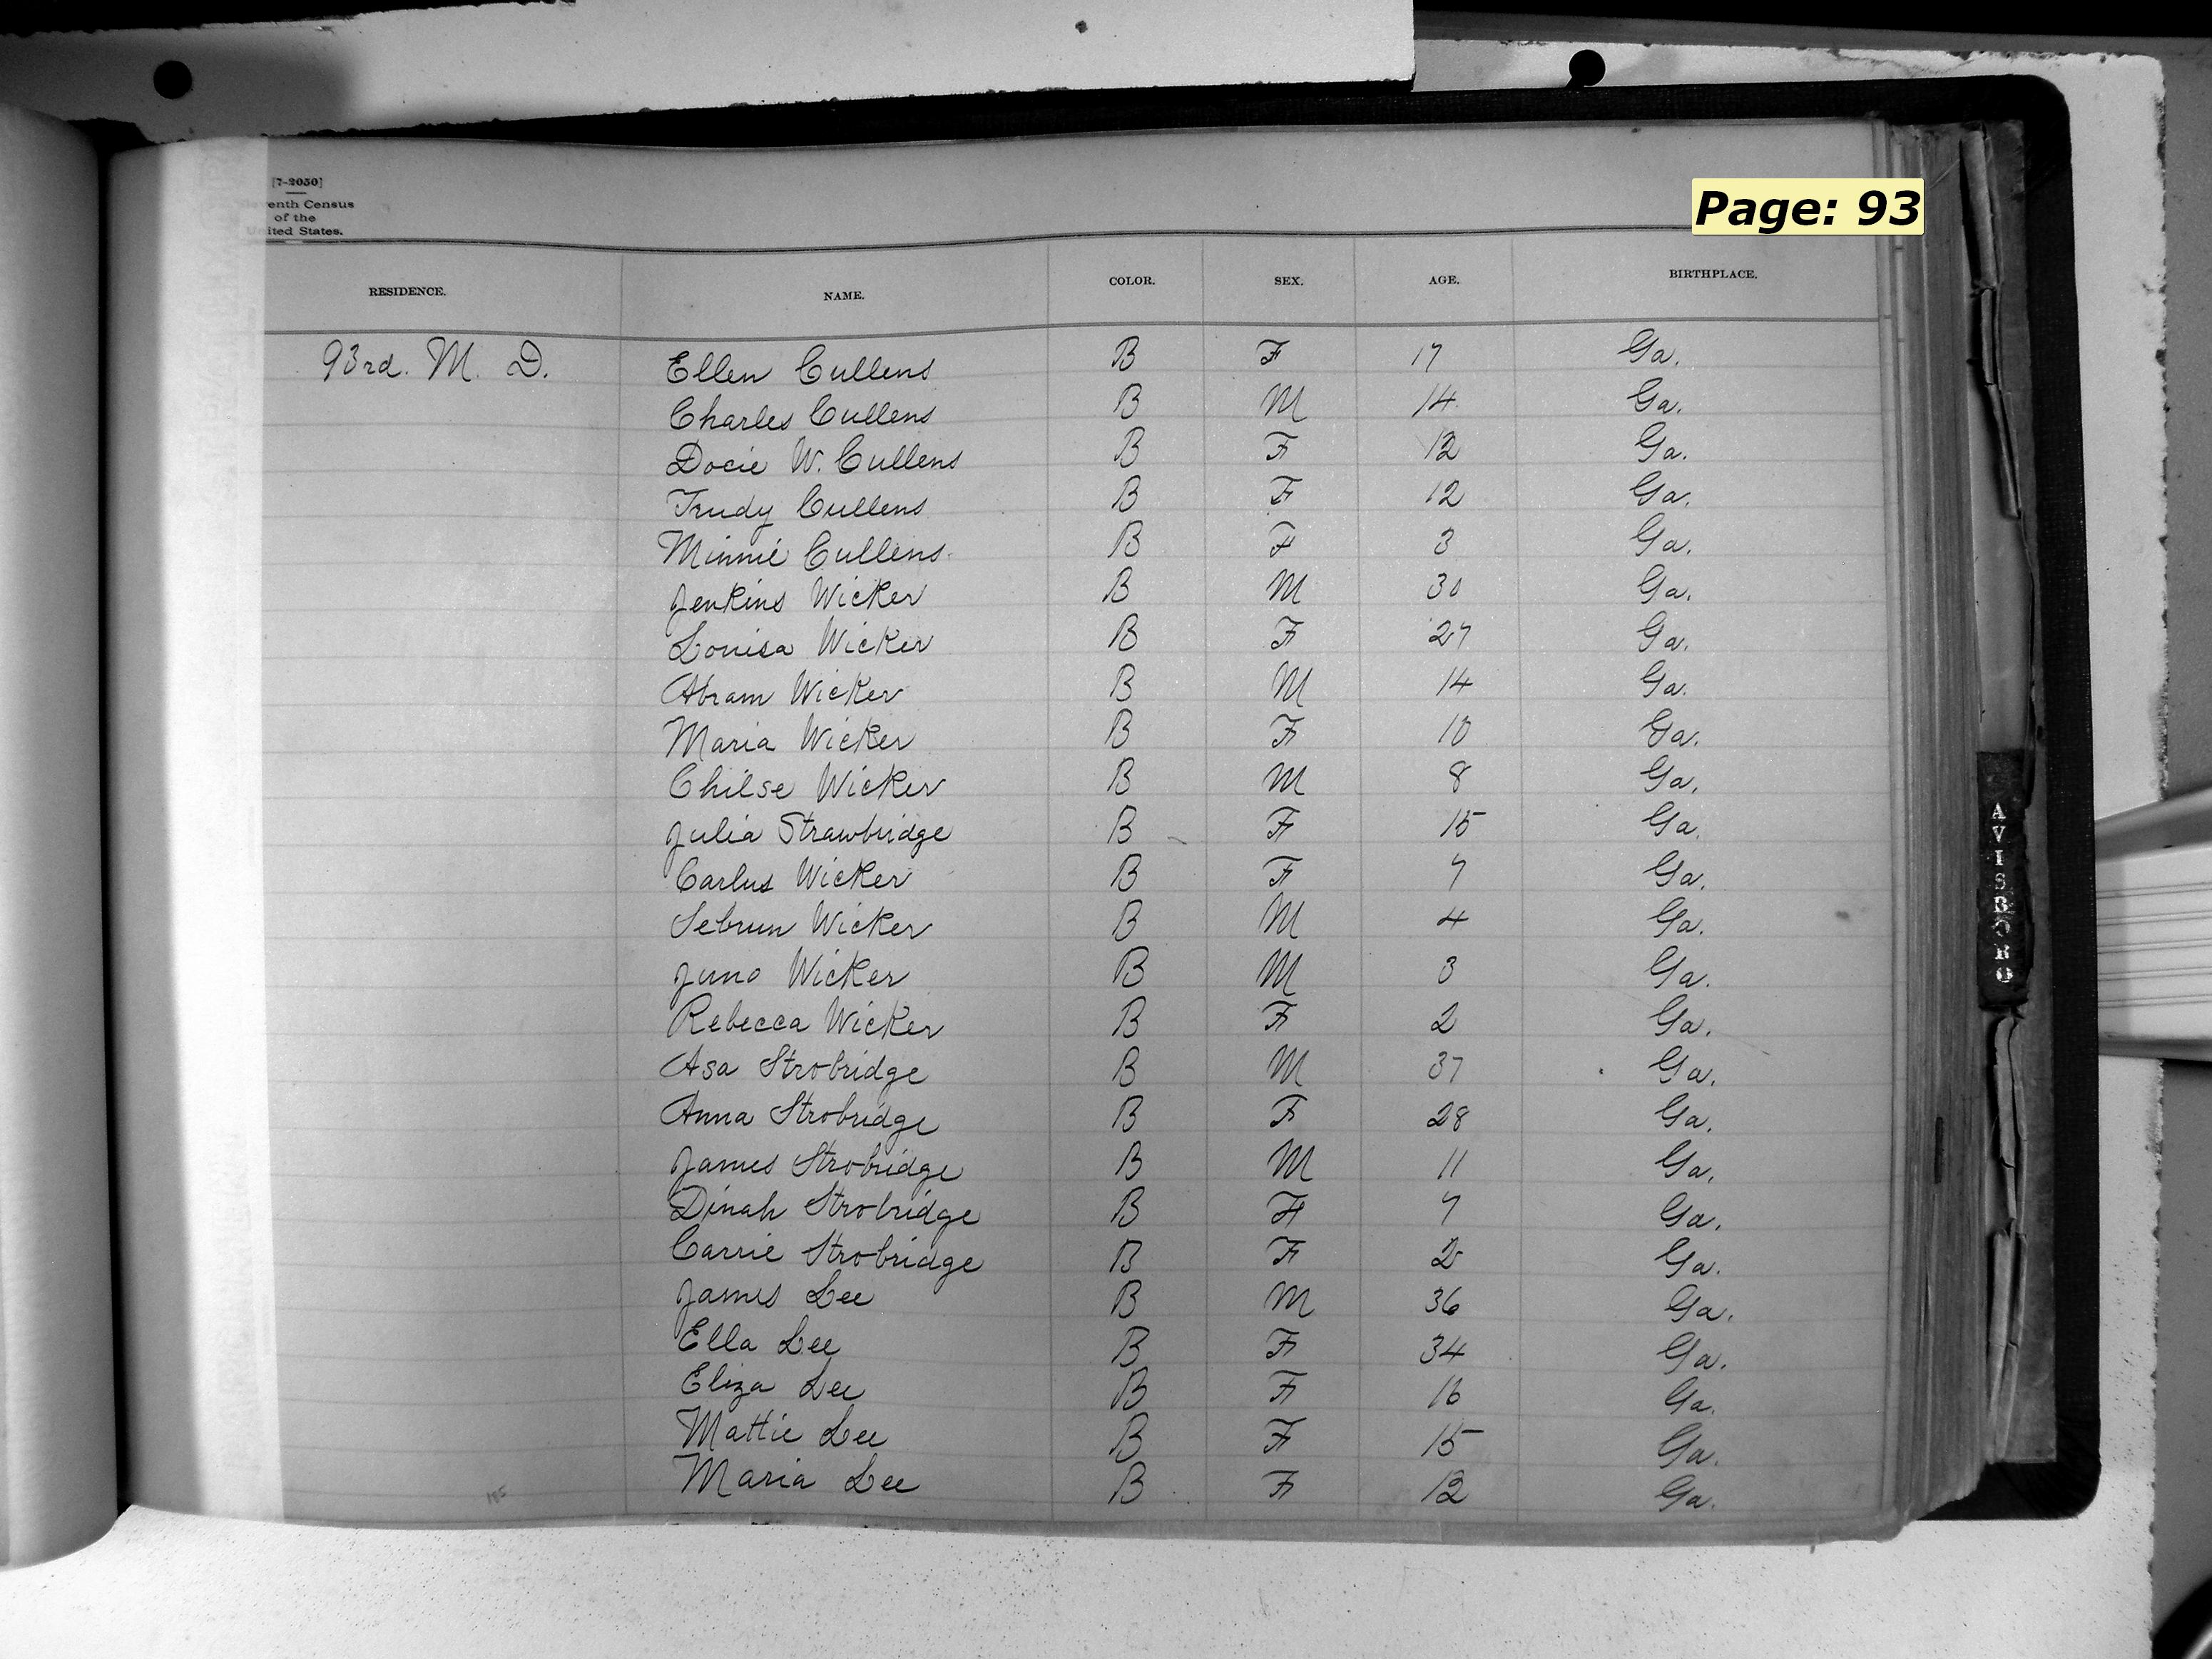 [7-2050]
enth Census
of the
ited States.
Page: 93
RESIDENCE. NAME. COLOR. SEX. AGE. BIRTHPLACE.
93rd. M. D. Ellen Cullens B F 17 Ga.
Charles Cullens B M 14 Ga.
Docie W. Cullens B F 12 Ga.
Trudy Cullens B F 12 Ga.
Minnie Cullens B F 3 Ga.
Jenkins Wicker B M 30 Ga.
Louisa Wicker B F 27 Ga.
Abram Wicker B M 14 Ga.
Maria Wicker B F 10 Ga.
Chilse Wicker B M 8 Ga.
Julia Strawbridge B F 15 Ga.
Carlus Wicker B F 7 Ga.
Sebrun Wicker B M 4 Ga.
Juno Wicker B M 3 Ga.
Rebecca Wicker B F 2 Ga.
Asa Strobridge B M 37 Ga.
Anna Strobridge B F 28 Ga.
James Strobridge B M 11 Ga.
Dinah Strobridge B F 7 Ga.
Carrie Strobridge B F 2 Ga.
James Lee B M 36 Ga.
Ella Lee B F 34 Ga.
Eliza Lee B F 16 Ga.
Mattie Lee B F 15 Ga.
Maria Lee B F 12 Ga.